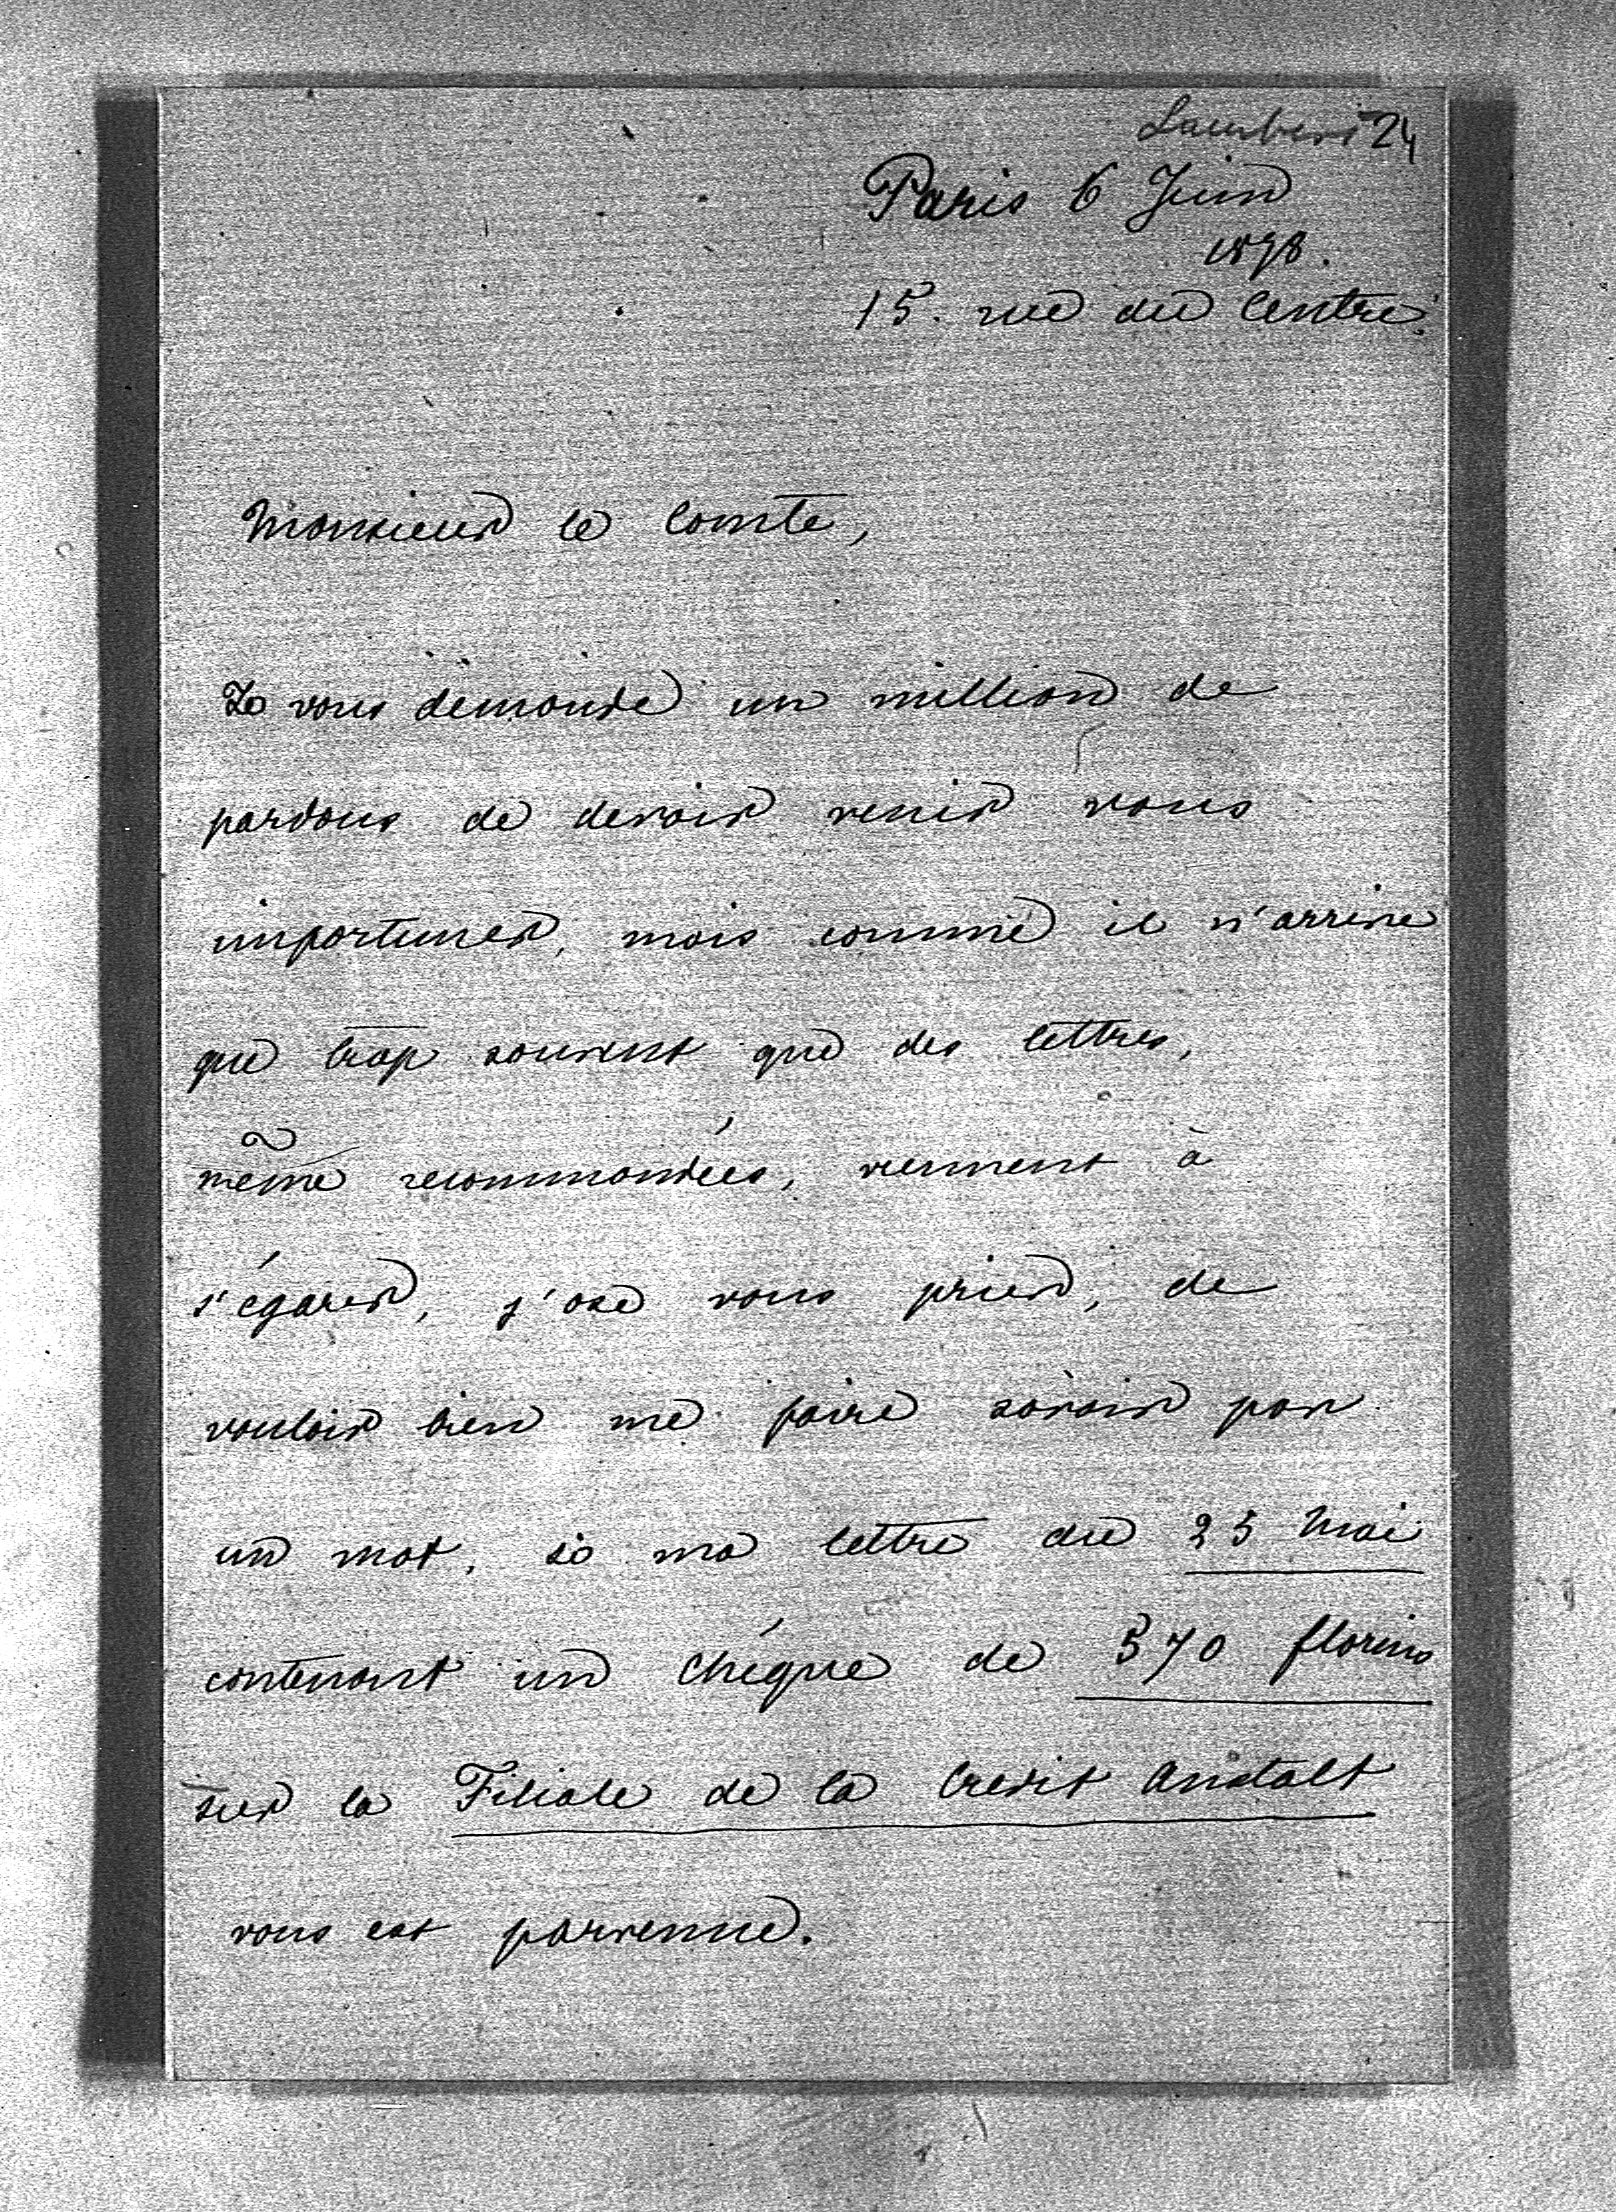 Lambert 24
Paris 6 Juin
1878.
15. rue du Centre.
Monsieur le Comte,
Je vous demande un million de
pardons de devoir venir vous
importuner, mais comme il n'arrive
que trop souvent que des lettres,
même recommandées, viennent à
s'égarer, j'ose vous prier, de
vouloir bien me faire savoir par
un mot, si ma lettre du 25 Mai
contenant un chéque de 570 florins
sur la Filiale de la Credit Anstalt
vous est parvenue.